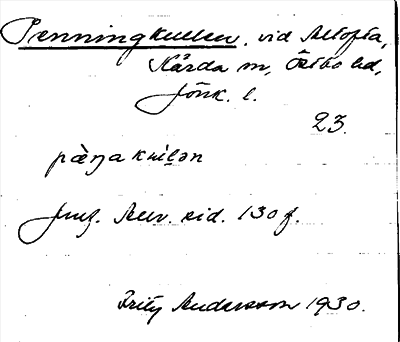 Penningkullen, vid Altofta,
Kärda sn, Östbo hd,
Jönk. l.
23.
pæ̀ŋakuɩlən
Jmf. Auv. sid. 130 f.
Fritz Andersson 1930.